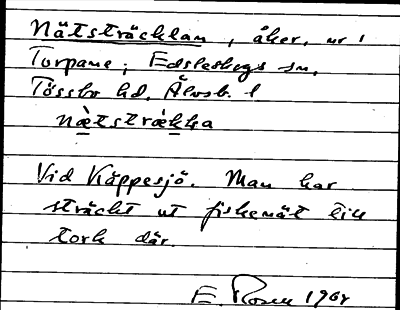 Nätsträckan, åker, nr 1
Torpane; Edsleskogs sn,
Tössbo hd. Älvsb. l
nä̀tsträ̀kka
Vid Käppesjö. Man har
sträckt ut fiskenät till
tork där.
E. Rosen